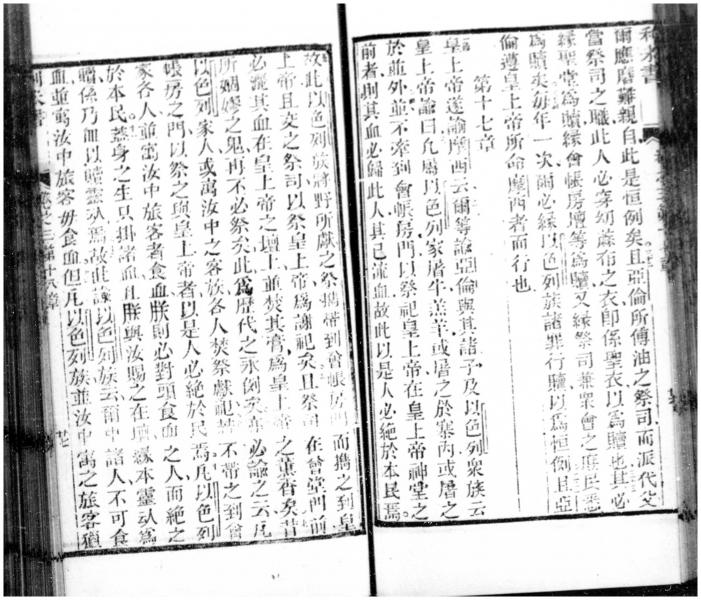 爾應磨難親自此是恒例矣且亞倫所傅油之祭司而派代父
當祭司之職此人必穿幼蔴布之衣即係聖衣以為贖也其必
緣聖堂為贖緣會帳房壇等為贖又緣祭司兼眾會之庶民悉
為贖矣每年一次爾必緣以色列族諸罪行贖以為恒例且亞
倫遵皇上帝所命摩西者而行也
第十七章
皇上帝遂諭摩西云爾等諭亞倫與其諸子及以色列眾族云
皇上帝諭曰凡屬以色列家屠牛羔羊或屠之於寨內或屠之
於並外並不牽到會帳房門以祭祀皇上帝在皇上帝神堂之
前者則其血必歸此人其已流血故此以是人必絕於本民焉
故此以色列族將野所獻之祭攜帶到會帳房門而攜之到皇
上帝且交之祭司以祭皇上帝為謝祀矣且祭司在會堂門前
必灑其血在皇上帝之壇上並焚其膏為皇上帝之馨香矣昔
所姻嫪之鬼再不必祭矣此為歷代之永例矣爾必諭之云凡
以色列家人或寓汝中之客族各人焚祭獻祀并不帶之到會
帳房之門以祭之與皇上帝者以是人必絕於民焉凡以色列
家各人並寓汝中旅客者食血朕則必對頭食血之人而絕之
於本民蓋身之生只掛諸血且朕與汝賜之在壇緣本靈以為
贖係乃血以贖靈以焉故此諭以色列族云爾中諸人不可食
血並寓汝中旅客毋食血但凡以色列族並汝中寓之旅客獵